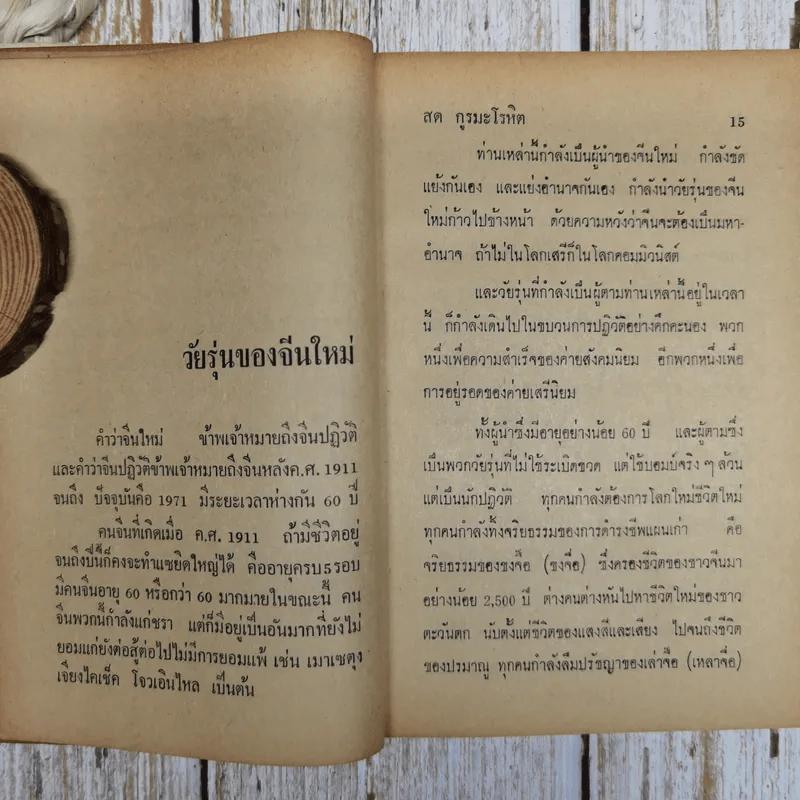 วัยรุ่นของจีนใหม่
คำว่าจีนใหม่ ข้าพเจ้าหมายถึงจีนปฏิวัติ
และคำว่าจีนปฏิวัติข้าพเจ้าหมายถึงจีนหลังค.ศ. 1911
จนถึง ปัจจุบันคือ 1971 มีระยะเวลาห่างกัน 60 ปี
คนจีนที่เกิดเมื่อ ค.ศ. 1911 ถ้ามีชีวิตอยู่
จนถึงปีนี้ก็คงจะทำแซยิดใหญ่ได้ คืออายุครบ5รอบ
มีคนจีนอายุ 60 หรือกว่า 60 มากมายในขณะนี้ คน
จีนพวกนี้กำลังแก่ชรา แต่ก็มีอยู่เป็นอันมากที่ยังไม่
ยอมแก่ยังต่อสู้ต่อไปไม่มีการยอมแพ้ เช่น เมาเซตุง
เจียงไคเช็ค โจวเอินไหล เป็นต้น
สด กูรมะโรหิต 15
ท่านเหล่านี้กำลังเป็นผู้นำของจีนใหม่ กำลังขัด
แย้งกันเอง และแย่งอำนาจกันเอง กำลังนำวัยรุ่นของจีน
ใหม่ก้าวไปข้างหน้า ด้วยความหวังว่าจีนจะต้องเป็นมหา-
อำนาจ ถ้าไม่ในโลกเสรีก็ในโลกคอมมิวนิสต์
และวัยรุ่นที่กำลังเป็นผู้ตามท่านเหล่านี้อยู่ในเวลา
นี้ ก็กำลังเดินไปในขบวนการปฏิวัติอย่างคึกคะนอง พวก
หนึ่งเพื่อความสำเร็จของค่ายสังคมนิยม อีกพวกหนึ่งเพื่อ
การอยู่รอดของค่ายเสรีนิยม
ทั้งผู้นำซึ่งมีอายุอย่างน้อย 60 ปี และผู้ตามซึ่ง
เป็นพวกวัยรุ่นที่ไม่ใช้ระเบิดขวด แต่ใช้บอมบ์จริง ๆ ล้วน
แต่เป็นนักปฏิวัติ ทุกคนกำลังต้องการโลกใหม่ชีวิตใหม่
ทุกคนกำลังทิ้งจริยธรรมของการดำรงชีพแผนเก่า คือ
จริยธรรมของขงจื๊อ (ขงจื่อ) ซึ่งครองชีวิตของชาวจีนมา
อย่างน้อย 2,500 ปี ต่างคนต่างหันไปหาชีวิตใหม่ของชาว
ตะวันตก นับตั้งแต่ชีวิตของแสงสีและเสียง ไปจนถึงชีวิต
ของปรมาณู ทุกคนกำลังลืมปรัชญาของเล่าจื๊อ (เหลาจื่อ)